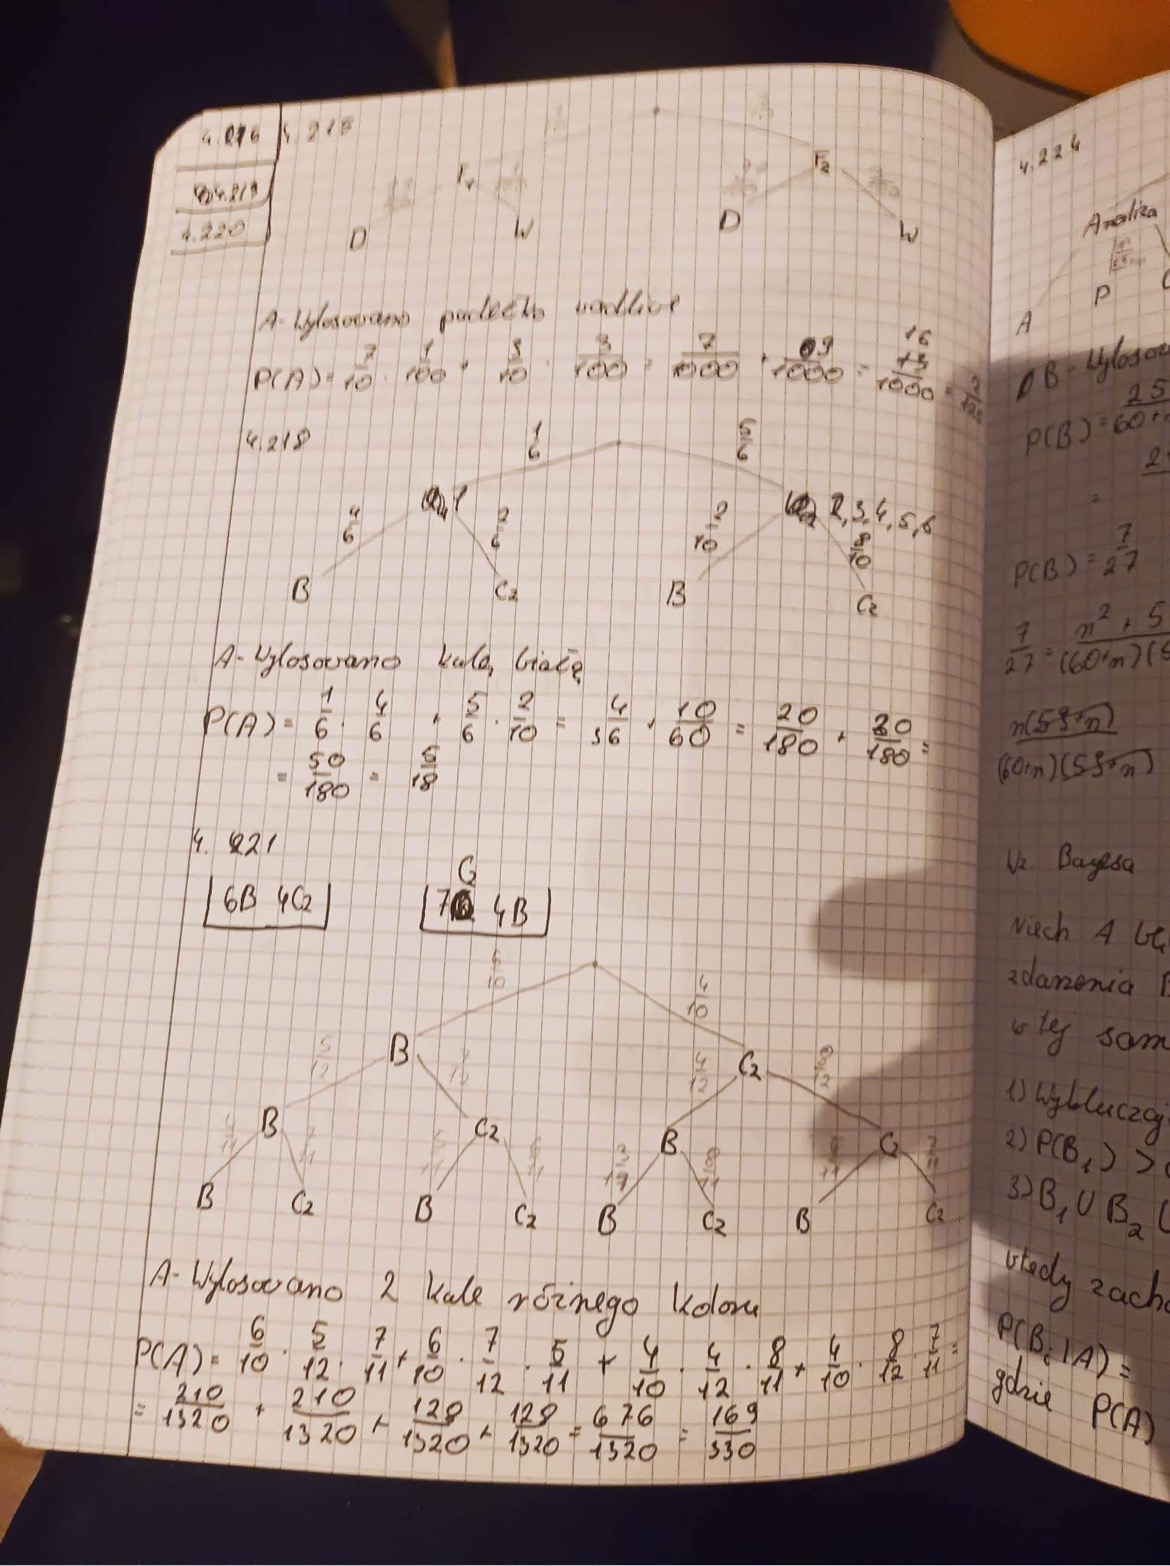 4.216 4.218
4.219
4.220
F₁ F₂
D W D W
A- Wylosowano pudełko wadliwe
P(A) = 7/10 · 1/100 + 3/10 · 3/100 = 7/1000 + 9/1000 = 16/1000 = 2/125
4.218
1/6 5/6
1 2,3,4,5,6
4/6 2/6 2/10 8/10
B Cz B Cz
A- Wylosowano kulę białą
P(A) = 1/6 · 4/6 + 5/6 · 2/10 = 4/36 + 10/60 = 20/180 + 30/180 =
= 50/180 = 5/18
4. 221
6B 4Cz 7C 4B
6/10 4/10
B Cz
5/12 7/12 4/12 8/12
B Cz B Cz
4/11 7/11 5/11 6/11 3/11 8/11 4/11 7/11
B Cz B Cz B Cz B Cz
A- Wylosowano 2 kule różnego koloru
P(A) = 6/10 · 5/12 · 7/11 + 6/10 · 7/12 · 5/11 + 4/10 · 4/12 · 8/11 + 4/10 · 8/12 · 7/11 =
= 210/1320 + 210/1320 + 128/1320 + 128/1320 = 676/1320 = 169/330
4.224
Analiza
A P
B- Wylosow
P(B) = 25
60+n
=
P(B) = 7/27
7/27 = n² + 5
(60+n)(5
n(59+n)
(60+n)(59+n)
Wz. Bayesa
Niech A bę
zdarzenia B
w tej sam
1) Wykluczaj
2) P(B₁) >
3) B₁ ∪ B₂ ∪
wtedy zacho
P(Bᵢ|A) =
gdzie P(A)